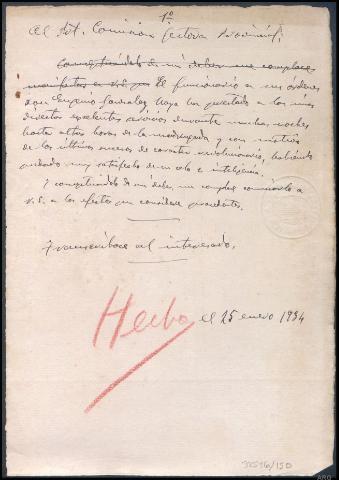 1º
Al Sr. Comisión Gestora Provincial.
Considerándolo de mi deber me complace
manifestar a V.S. que El funcionario a mis órdenes
don Eugenio González Moya ha prestado a las mas
directos excelentes servicios durante muchas noches
hasta altas horas de la madrugada y con motivo
de los últimos sucesos de carácter revolucionario, habiendo
quedado muy satisfecho de su celo e inteligencia.
Y considerándolo de mi deber, me complace comunicarlo a
V.S. a los efectos que considere procedentes.
Transcríbase al interesado.
Hecho el 25 enero 1934